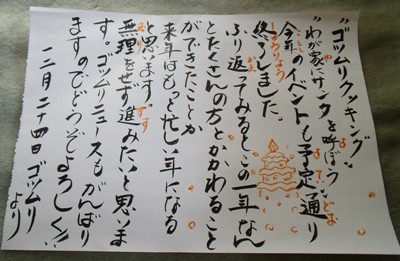 "ゴツムリクッキング"
"わが家にサンタを呼ぼう"
今年のイベントも予定通り
終了しました。
ふり返てみるとこの一年なん
とたくさんの方とかかわること
ができたことか
来年はもっと忙しい年になる
と思います。
無理をせず進みたいと思いま
す。ゴツムリニュースもがんばり
ますのでどうぞよろしく!!
十二月二十四日 ゴツムリ
より